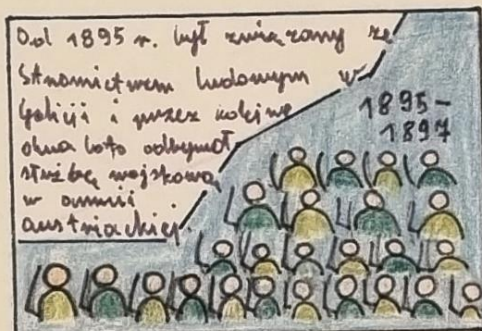 Od 1895 r. był związany ze
Stronnictwem ludowym w
Galicji i przez kolejne
dwa lata odbywał
służbę wojskową
w armii
austriackiej.
1895-
1897